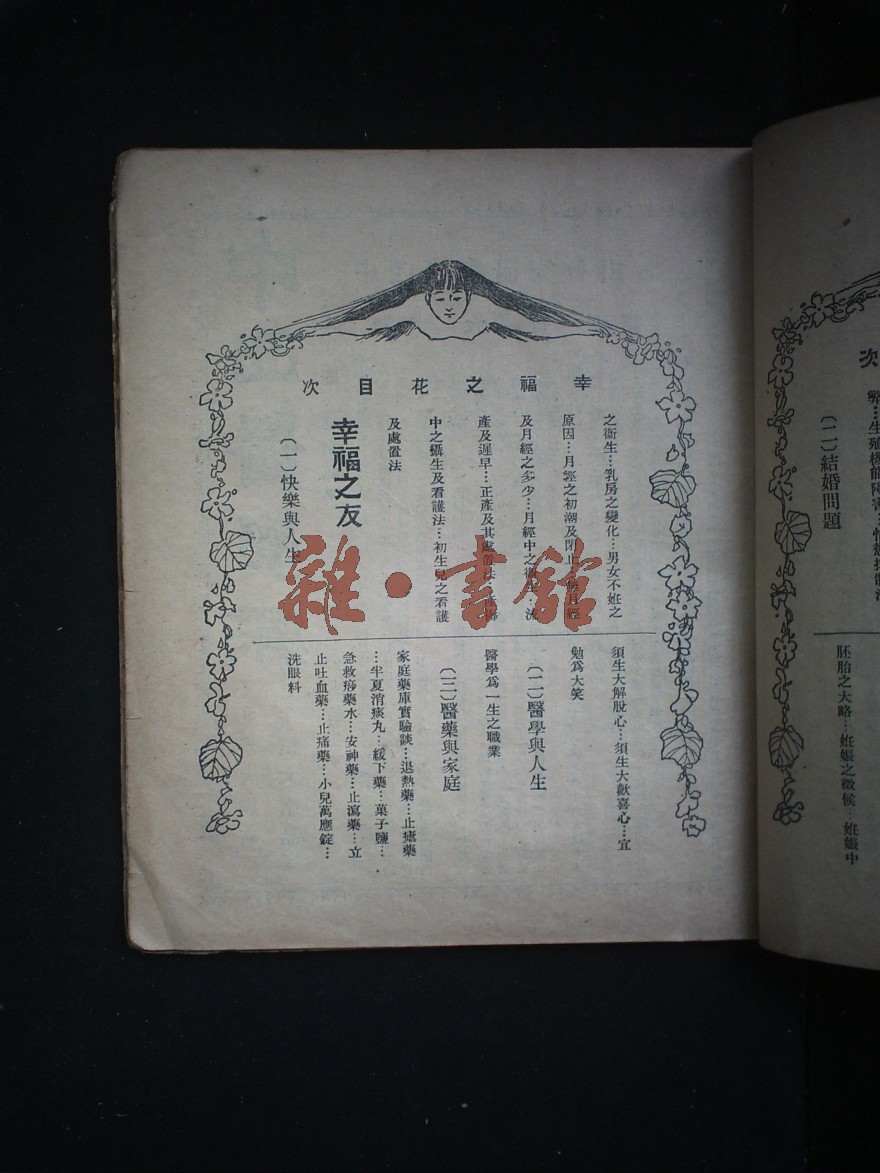 幸福之花目次
之衛生…乳房之變化…男女不姙之
原因…月經之初潮及閉止…每月經
及月經之多少…月經中之衛生…流
產及遲早…正產及其處置法
中之攝生及看護法…初生兒之看護
及處置法
幸福之友
(一)快樂與人生
須生大解脫心…須生大歡喜心…宜
勉爲大笑
(二)醫學與人生
醫學爲一生之職業
(三)醫藥與家庭
家庭藥庫實驗談…退熱藥…止瘧藥
…半夏消痰丸…緩下藥…菓子鹽…
急救痧藥水…安神藥…止瀉藥…立
止吐血藥…止痛藥…小兒萬應錠…
洗眼料
雜·書館
次
弊…生殖機能障害…
(二)結婚問題
胚胎之大略…姙娠之徵候…姙娠中